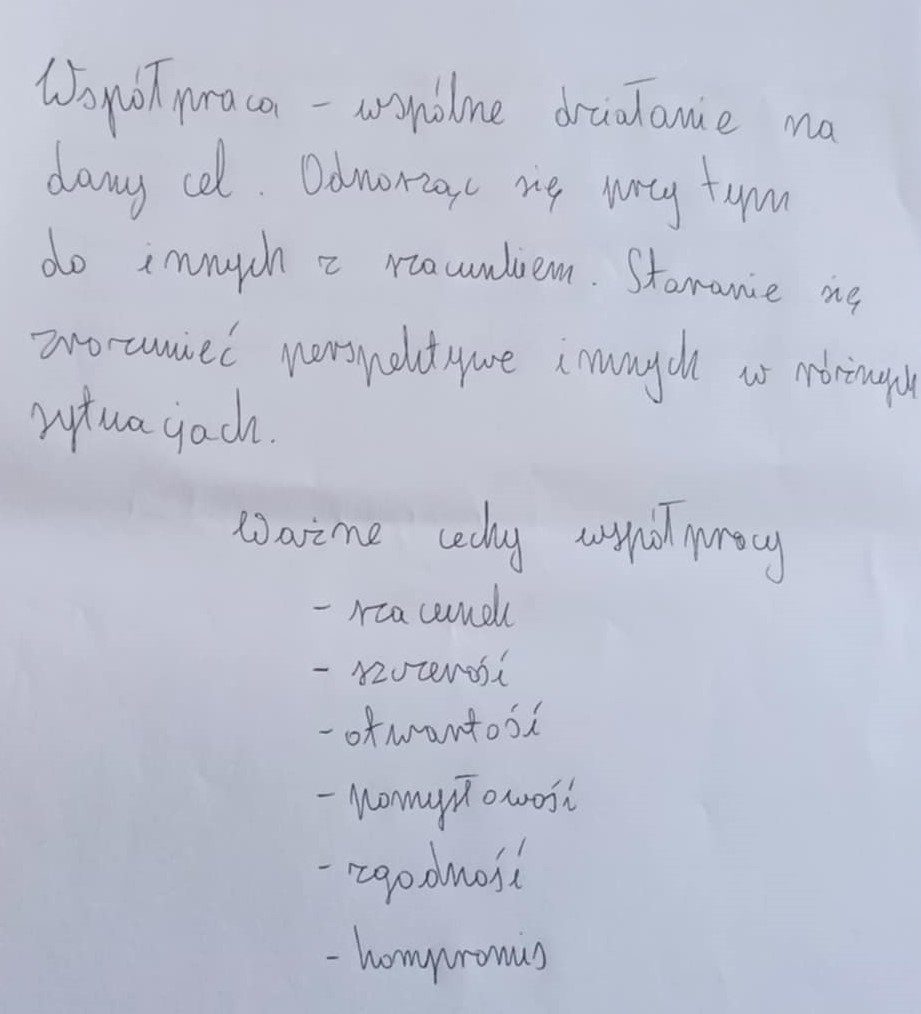 Współpraca - wspólne działanie na
dany cel. Odnosząc się przy tym
do innych z szacunkiem. Staranie się
zrozumieć perspektywe innych w różnych
sytuacjach.
Ważne cechy współpracy
- szacunek
- szczerość
- otwartość
- pomysłowość
- zgodność
- kompromis